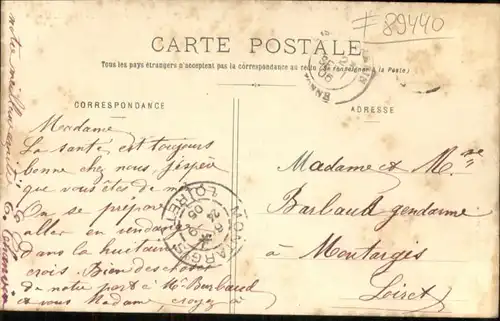 # 89440
CARTE POSTALE
Tous les pays étrangers n'acceptent pas la correspondance au recto (Se renseigner à la Poste)
CORRESPONDANCE
ADRESSE
Madame
La santé est toujours
bonne chez nous j'espère
que vous êtes de
On se prépare
aller en vendan
Dans la huitaine
crois. Bien des choses
de notre part à Mr Barbaud
et vous Madame croyez à
notre meilleur
MONTARGIS
LOIRET
05
Madame et M.
Barbaud gendarme
à Montargis
Loiret